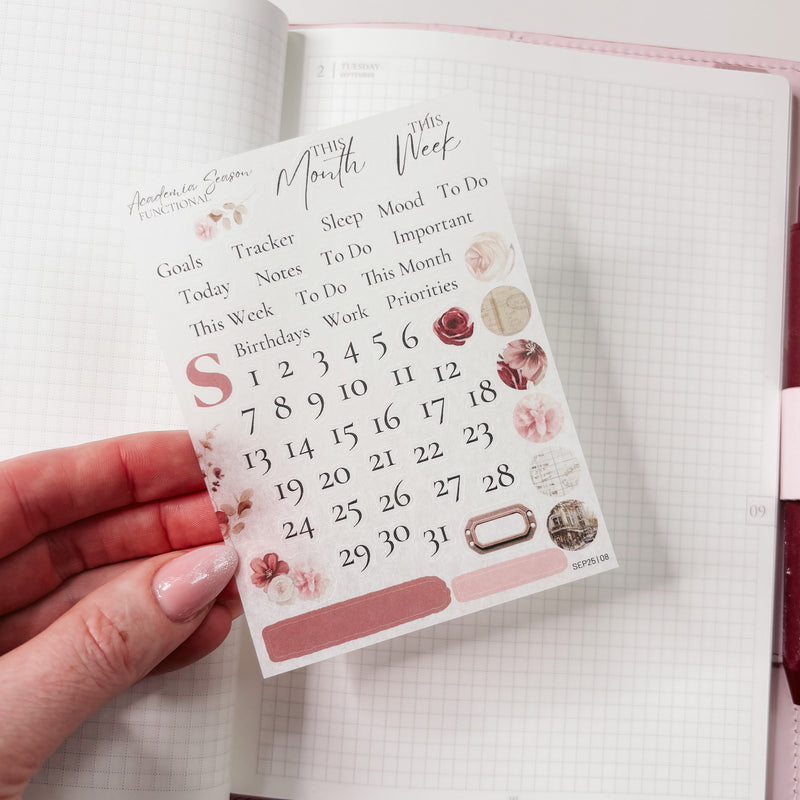 2 TUESDAY
SEPTEMBER
Academia Season
FUNCTIONAL
THIS
Month
THIS
Week
Goals Tracker Sleep Mood To Do
Today Notes To Do Important
This Week To Do This Month
Birthdays Work Priorities
S
1 2 3 4 5 6
7 8 9 10 11 12
13 14 15 16 17 18
19 20 21 22 23
24 25 26 27 28
29 30 31
SEP25|08
09